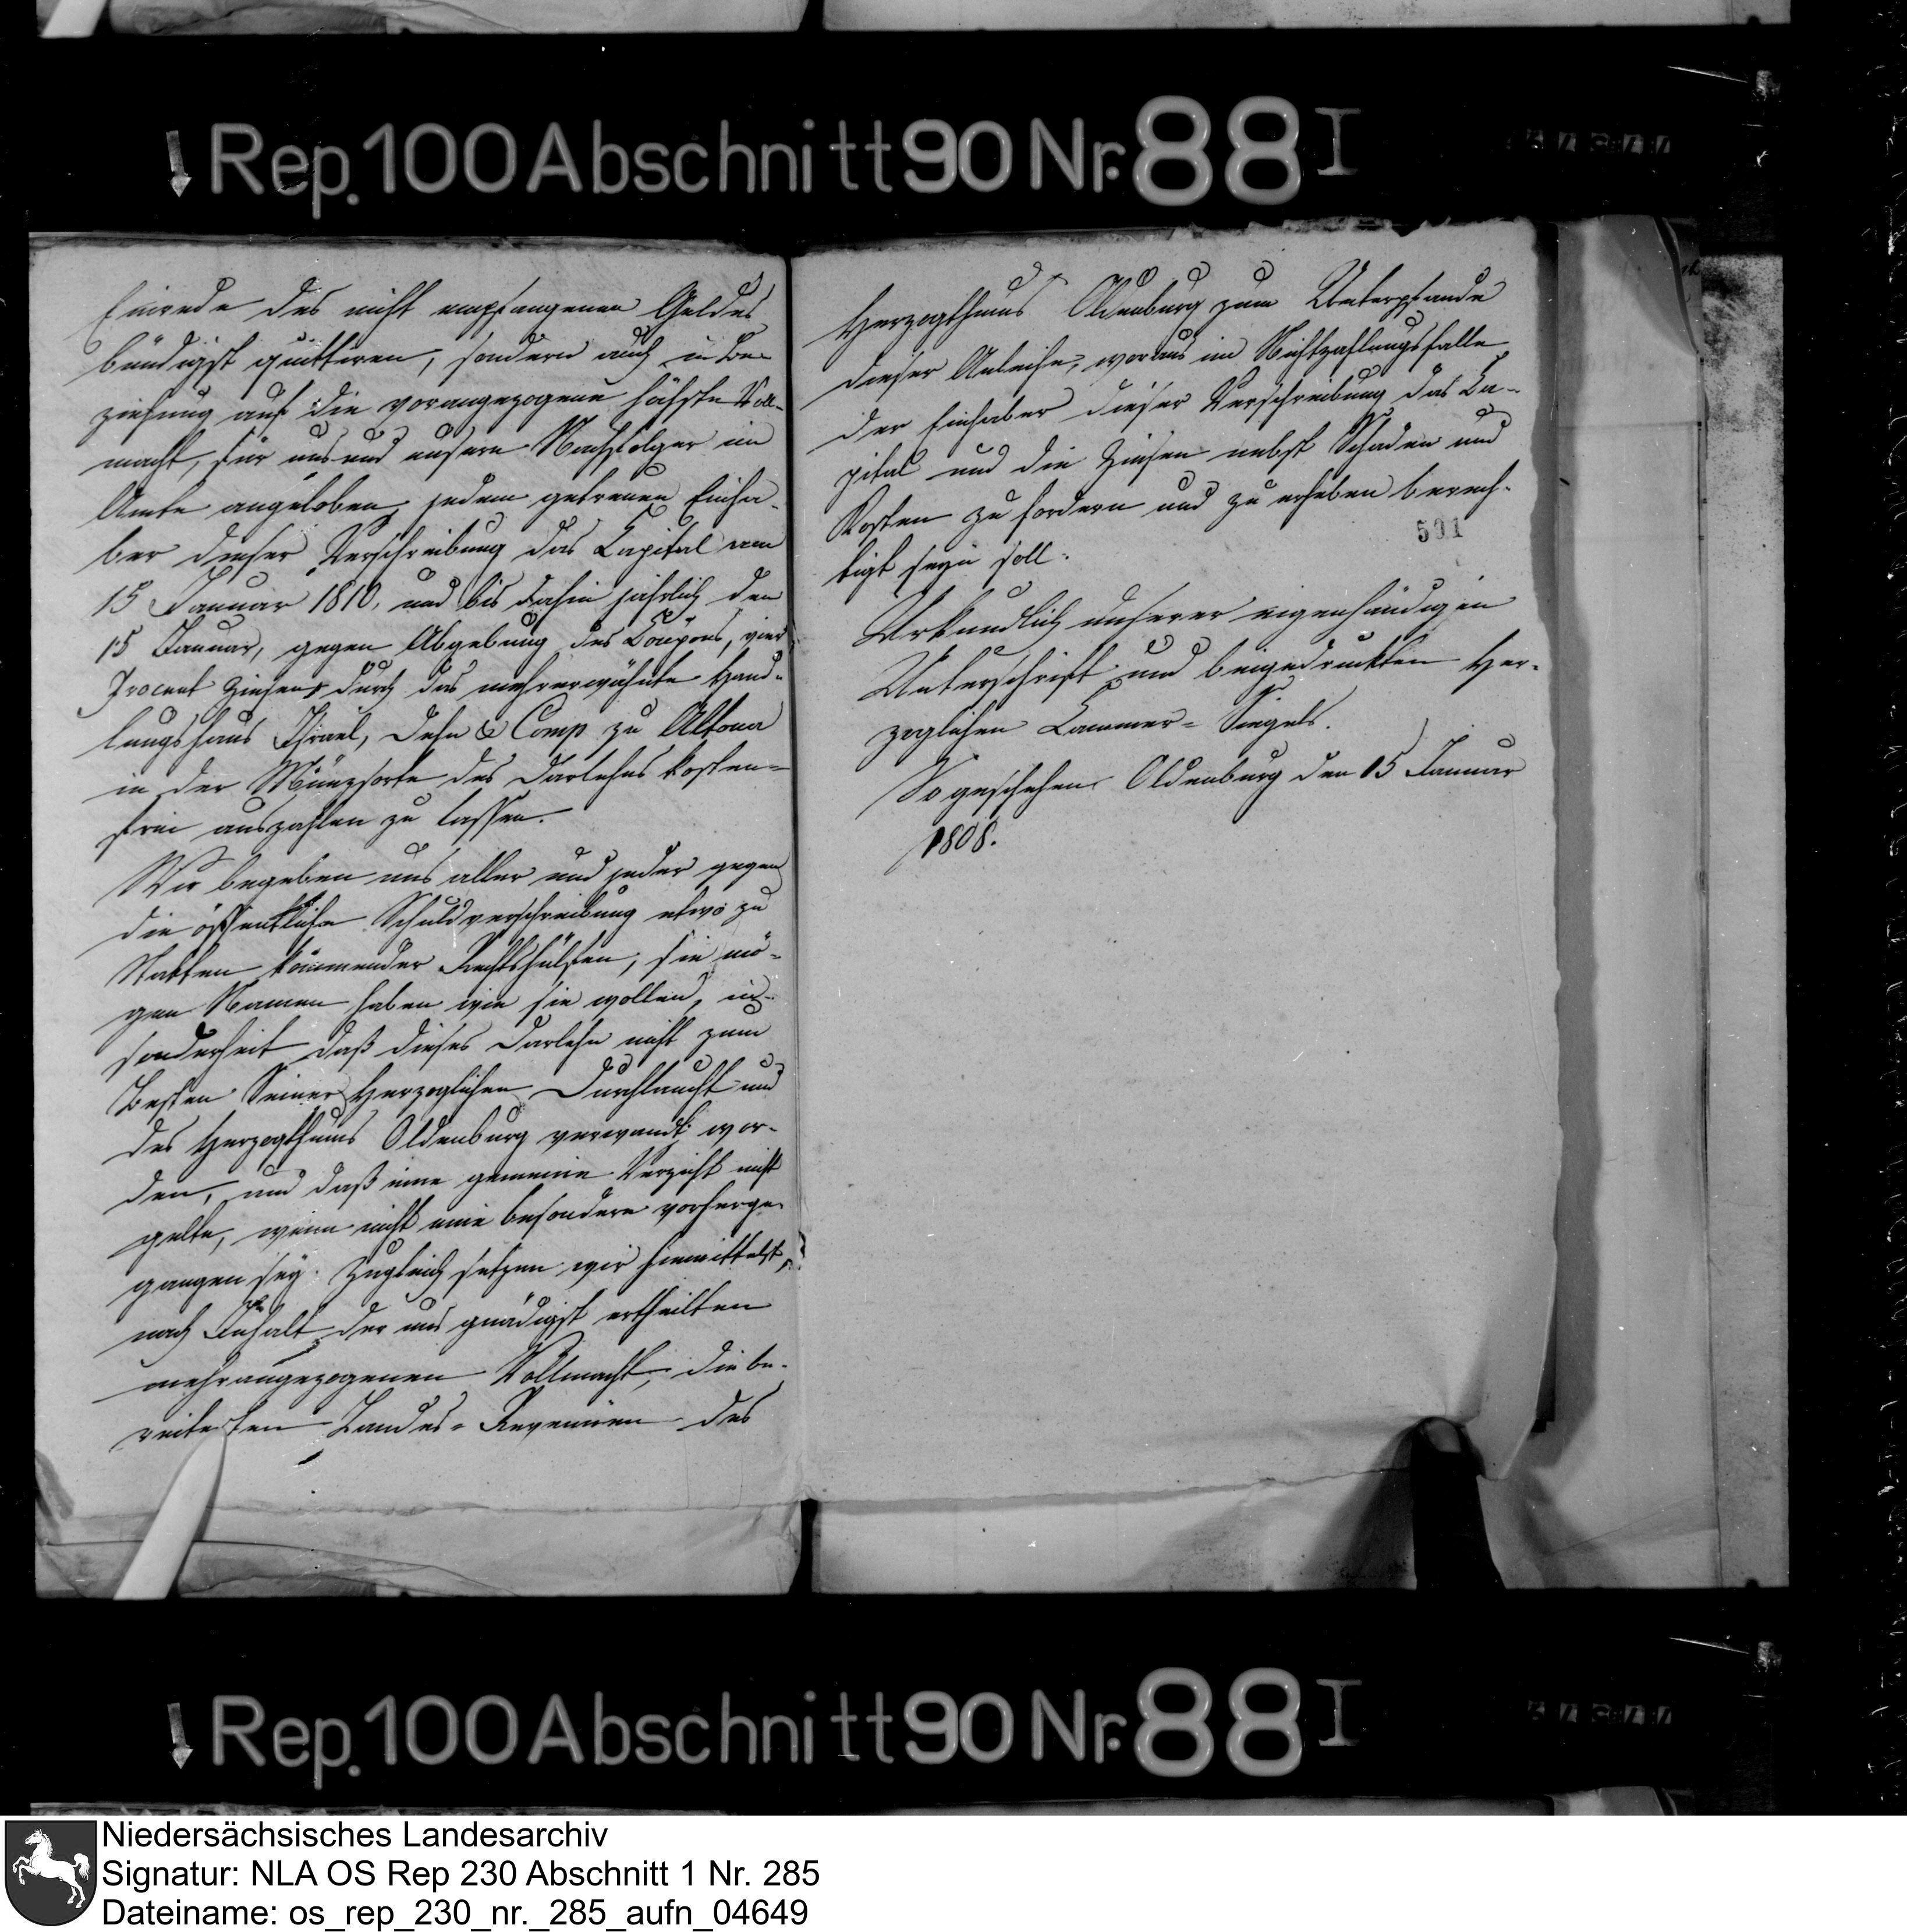 Rep. 100 Abschnitt 90 Nr. 88 I
Einrede des nicht empfangenen Geldes
bündigst quittiren, sondern auch in Be-
ziehung auf die vorangezogene höchste Voll-
macht, für uns und unsere Nachfolger im
Amte angeloben, jedem getreuen Einha-
ber dieser Verschreibung das Capital am
15 Januar 1810, und bis dahin jährlich den
15 Januar, gegen Abgebung des Coupons, vier
Procent Zinsen durch das mehrerwähnte Hand-
lungshaus Israel, Dehn & Comp zu Altona
in der Münzsorte des Darlehns kosten-
frei auszahlen zu lassen.
Wir begeben uns aller und jeder gegen
die öffentliche Schuldverschreibung etwa zu
Statten kommender Rechtshülfen, sie mö-
gen Namen haben wie sie wollen, in-
sonderheit daß dieses Darlehn nicht zum
Besten Seiner Herzoglichen Durchlaucht und
des Herzogthums Oldenburg verwandt wor-
den, und daß eine gemeine Verzicht nicht
gelte, wenn nicht eine besondere vorherge-
gangen sey. Zugleich setzen wir hiemittelst,
nach Inhalt der uns gnädigst ertheilten
mehrangezogenen Vollmacht, die be-
reitesten Landes-Revenüen des
Herzogthums Oldenburg zum Unterpfande
dieser Anleihe, woraus im Nichtzahlungsfalle
der Einhaber dieser Verschreibung das Ca-
pital und die Zinsen nebst Schaden und
Kosten zu fordern und zu erheben berech-
591
tigt seyn soll.
Urkundlich unserer eigenhändigen
Unterschrift und beigedruckten Her-
zoglichen Cammer-Siegels.
So geschehen Oldenburg den 15 Januar
1808.
Rep. 100 Abschnitt 90 Nr. 88 I
Niedersächsisches Landesarchiv
Signatur: NLA OS Rep 230 Abschnitt 1 Nr. 285
Dateiname: os_rep_230_nr._285_aufn_04649